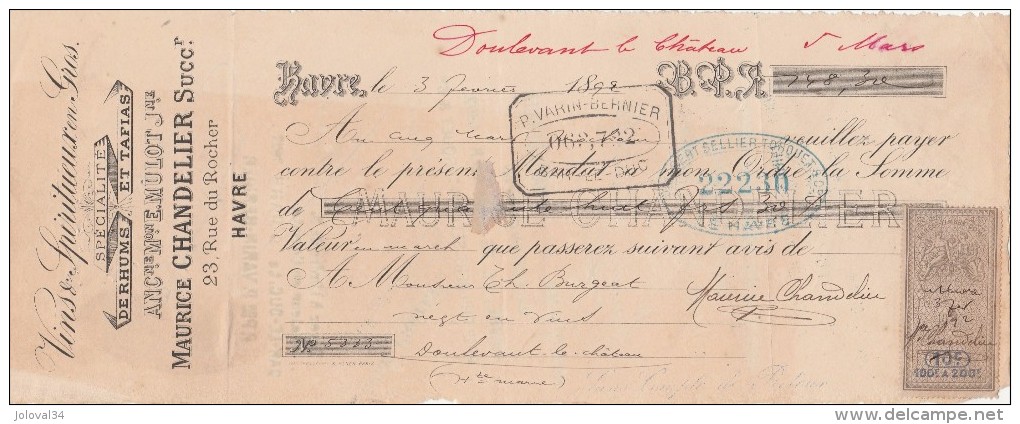 Vins & Spiritueux en Gros.
SPÉCIALITÉ
DE RHUMS ET TAFIAS
ANC.NE M.ON E. MULOT J.NE
MAURICE CHANDELIER Succ.r
23, Rue du Rocher
HAVRE
Doulevant le Château 5 Mars
Havre, le 3 février 1892 B.P.F. 148,30
P. VARIN-BERNIER
Au cinq Mars prochain veuillez payer
contre le présent Mandat à mon Ordre la Somme
22230
HAVRE
MAURICE CHANDELIER
de Cent quarante huit frs 30c
Valeur en march que passerez suivant avis de
A Monsieur Th. Burgeat
Maurice Chandelier
negt en vins
No 5333
Doulevant-le-château
(Hte marne)
10c
100F A 200F
joloval34
delcampe.net